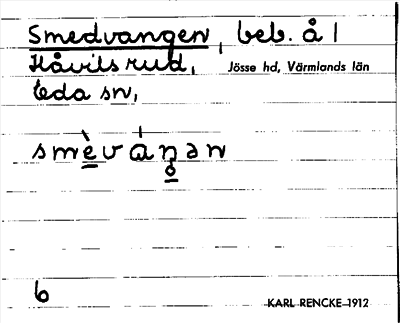 Smedvangen, beb. å 1
Håvilsrud, Jösse hd, Värmlands län
Eda sn,
smèvánan
6
KARL RENCKE 1912